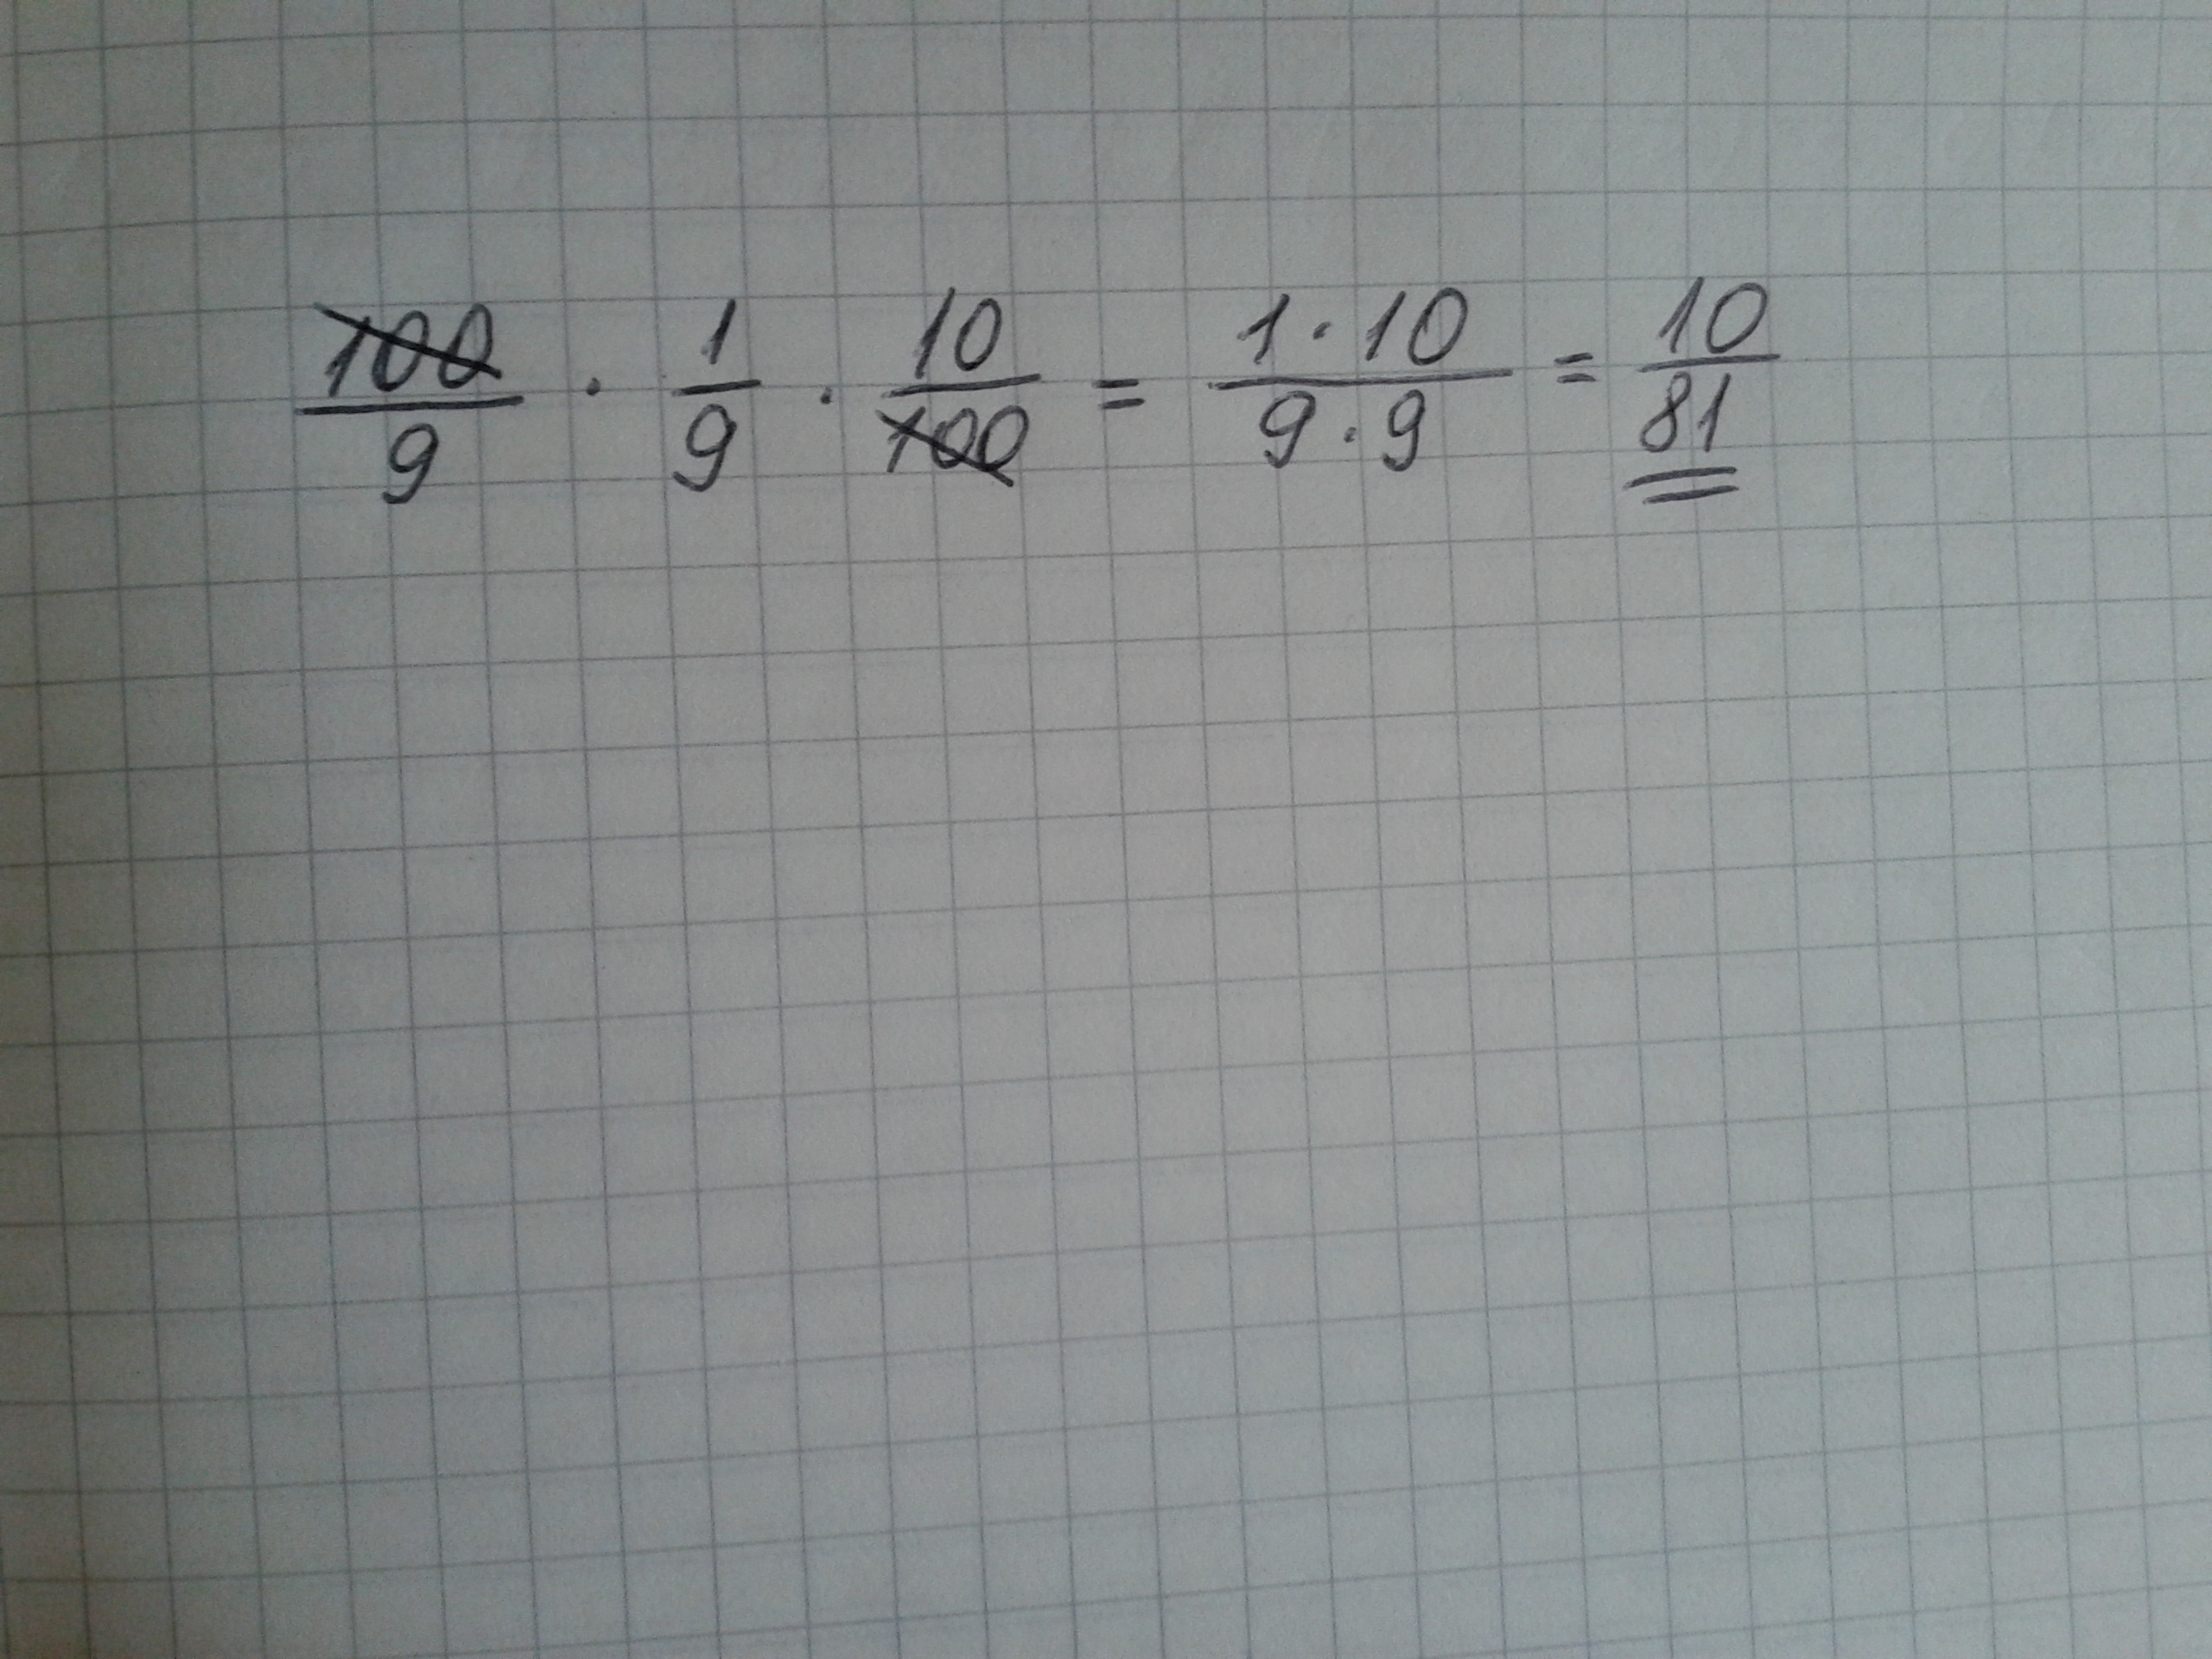 100/9 · 1/9 · 10/100 = 1·10/9·9 = 10/81